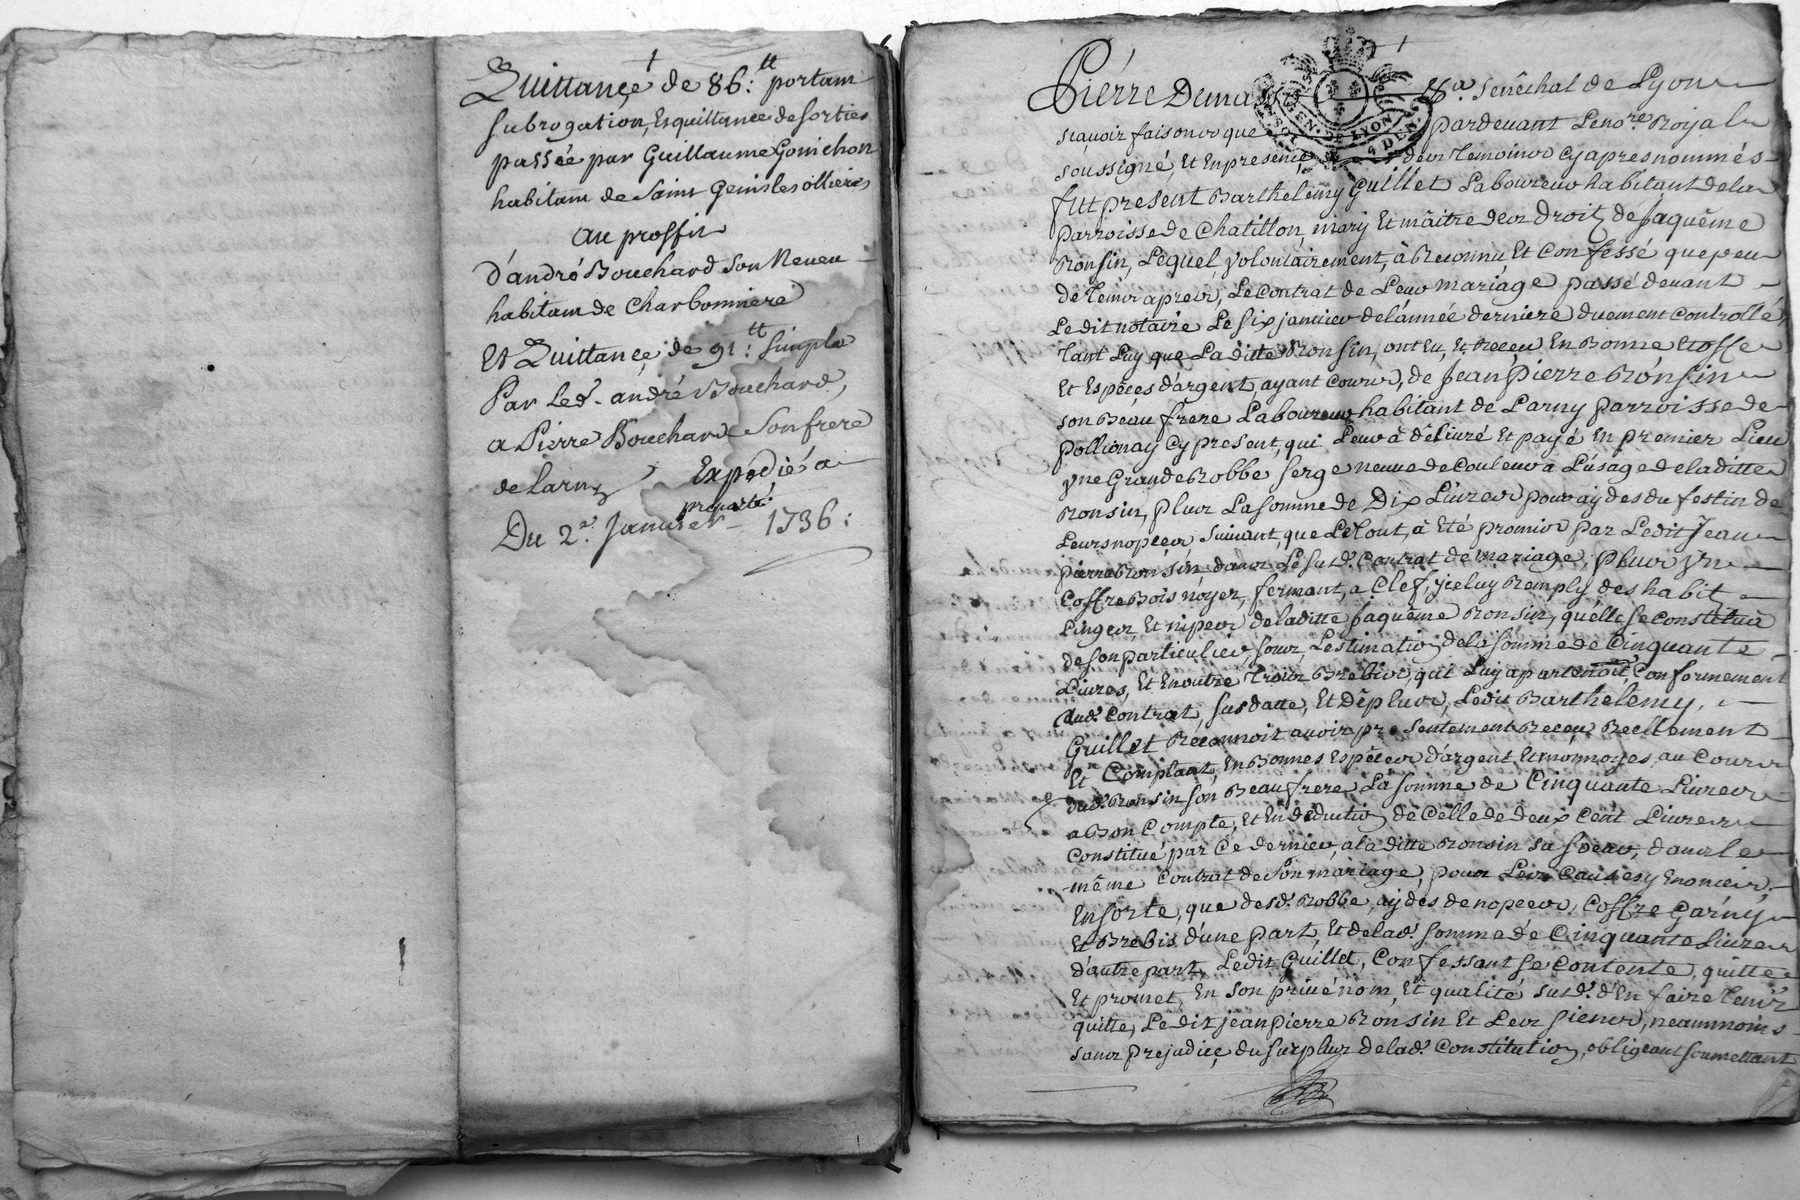 Quittance de 86:tt portam
subrogation, Et quittance de sorties
passée par Guillaume Gonichon
habitam de Saint Genis les ollieres
au proffit
d'andré Bouchard son Neveu
habitam de Charbonniere
Et Quittance de 91:tt simple
Par led. andré Bouchard,
a Pierre Bouchard Son frere
de Larny
Expedié a
preparté
Du 2e. Janvier 1736:
Pierre Dumas Senêchal de Lyon
sçavoir faisons que pardevant Le nore. Royal
soussigné, Et En presence des temoins cy apres nommés
fut present Barthelemy Guillet Laboureur habitant de la
parroisse de Chatillon, mary Et maître des droits de Jaquême
Ronsin, Lequel volontairement, à Reconnu Et Confessé que peu
de tems apres, Le Contrat de Leur mariage passé devant
Ledit notaire Le six janvier de l'année derniere duement Controllé,
tant Luy que La ditte Ronsin, ont Eu, Et Receu En Bonne Etoffe
Et Espéces d'argent, ayant Cours, de Jean Pierre Ronsin
son Beau frere Laboureur habitant de Larny parroisse de
Pollionay Cy present, qui Leur à délivré Et payé En premier Lieu
yne Grande Robbe serge neuve de Couleur à L'usage de la ditte
Ronsin, plus La somme de Dix Livres pour aydes du festin de
Leurs nopces Suivant, que Le tout, à Eté promis par Ledit Jean
pierre Ronsin dans Le susd. Contrat de mariage; plus yn
Coffre Bois noyer, fermant, a Clef, yceluy Remply des habits
Linges Et nipes de laditte Jaquême Ronsin, quelle se Constitua
de son particulier, sous, L'estimation de la somme de Cinquante
Livres, Et En outre trois Brebis, qui Luy apartenoit, Conformement
Aud. Contrat, susdatte, Et Dêplus, Ledit Barthelemy,
Guillet Réconnoit avoir presentement Receu Reellement
Et Comptant, En Bonnes Espéces d'argent Et monnoyes au Cours
dud. Ronsin son Beau frere La somme de Cinquante Livres
a Bon Compte, Et En déduction de Celle de deux Cent Livres
Constitué par Ce dernier, a la ditte Ronsin sa soeur, dans le
même Contrat de son mariage, pour Les Causes y Enoncéz
En sorte, que desd. Robbe, aydes de nopces, Coffre Garny
Et Brebis d'une part, Et de lad. somme de Cinquante Livres
d'autre part, Ledit Guillet, Confessant se Contente, quitte
Et promet, En son privé nom, Et qualité susd. d'En faire tenir
quitte, Ledit jean pierre Ronsin Et Les siens, neammoins
sans prejudice du surplus de lad. Constitution, obligeant soumettant